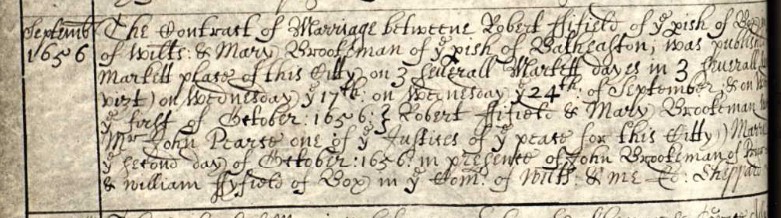 Septemb
1656
The Contract of Marriage betweene Robert ffifield of ye pish of Box
of Wilts: & Mary Brookman of ye pish of Batheaston, was publish
Markett place of this Citty on 3 severall Markett dayes in 3 severall
vizt) on Wednesday ye 17th: on Wednesday ye 24th: of September, & on
ye first of October: 1656: & Robert ffifield & Mary Brookman
Mr John Pearse one of ye Justices of ye peace for this Citty) Marri
ye second day of October: 1656: in presence of John Brookeman of
& William ffyfield of Box in ye Com: of Wilts: & me Sheppard